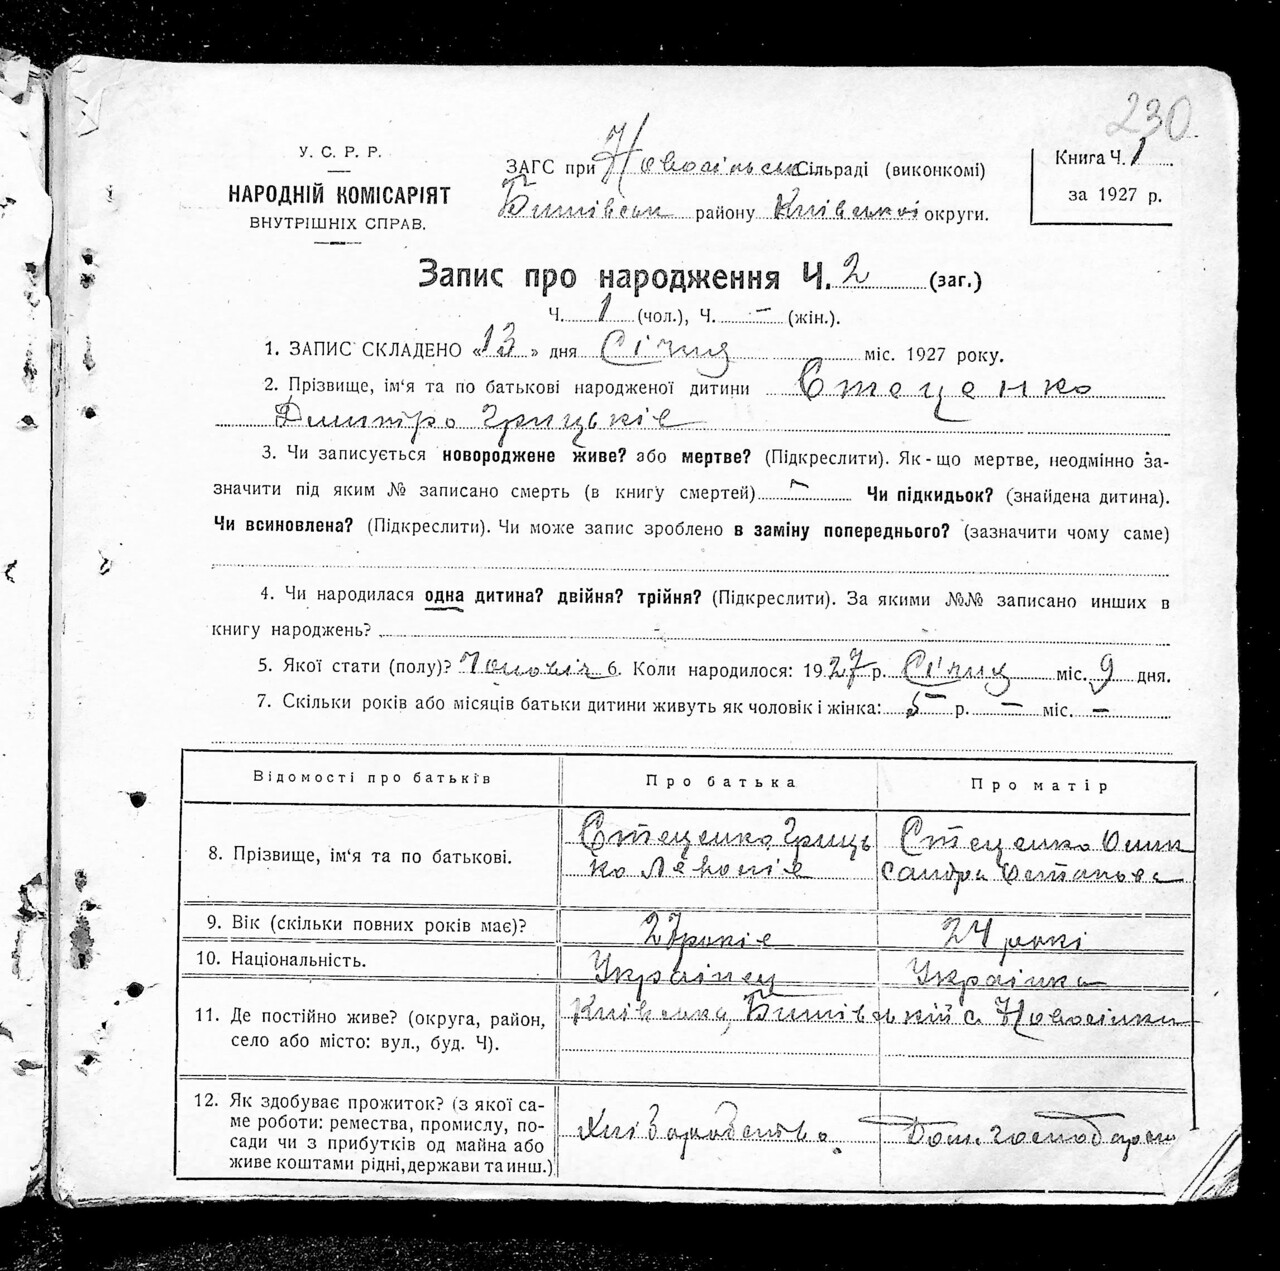 230
У. С. Р. Р.
НАРОДНІЙ КОМІСАРІЯТ
ВНУТРІШНІХ СПРАВ.
ЗАГС при Новосільськ Сільраді (виконкомі)
Бишівськ району Київської округи.
Книга Ч. 1
за 1927 р.
Запис про народження Ч. 2 (заг.)
Ч. 1 (чол.), Ч. - (жін.).
1. ЗАПИС СКЛАДЕНО «13» дня Січня міс. 1927 року.
2. Прізвище, ім‘я та по батькові народженої дитини Стеценко
Дмитро Грицьків
3. Чи записується новороджене живе? або мертве? (Підкреслити). Як-що мертве, неодмінно за-
значити під яким № записано смерть (в книгу смертей) - Чи підкидьок? (знайдена дитина).
Чи всиновлена? (Підкреслити). Чи може запис зроблено в заміну попереднього? (зазначити чому саме)
4. Чи народилася одна дитина? двійня? трійня? (Підкреслити). За якими №№ записано инших в
книгу народжень? -
5. Якої стати (полу)? Чоловіч 6. Коли народилося: 1927 р. Січня міс. 9 дня.
7. Скільки років або місяців батьки дитини живуть як чоловік і жінка: 5 р. - міс. -
Відомості про батьків Про батька Про матір
8. Прізвище, ім‘я та по батькові. Стеценко Гриць Стеценко Олик
ко Левонів сандра Остапова
9. Вік (скільки повних років має)? 27 років 24 рокі
10. Національність. Українец Українка
11. Де постійно живе? (округа, район, Київська, Бишівський с. Новосілки
село або місто: вул., буд. Ч).
12. Як здобуває прожиток? (з якої са-
ме роботи: ремества, промислу, по- Хліборобство. Дом. господарств
сади чи з прибутків од майна або
живе коштами рідні, держави та инш.)